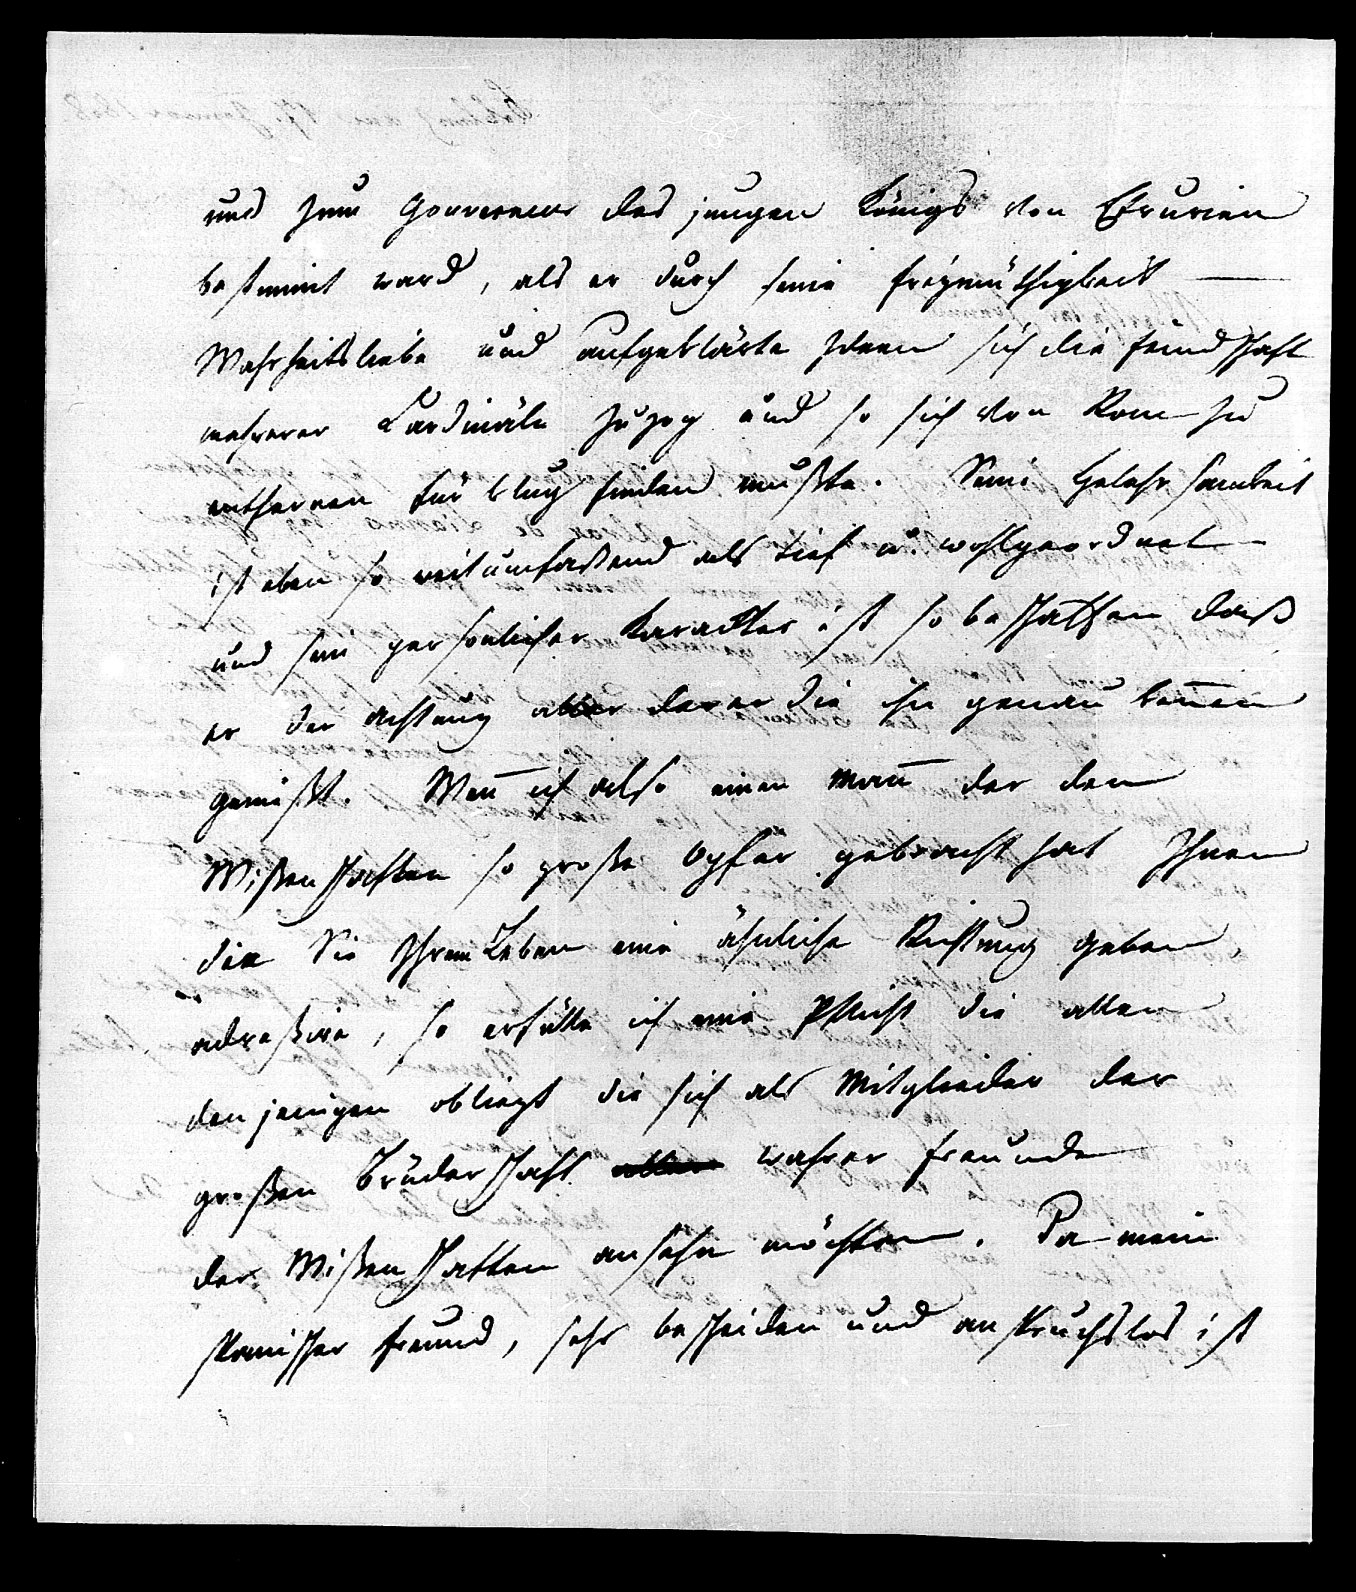 und zum Gouverneur des jungen Königs von Etrurien
bestimmt ward, als er durch seine Freymüthigkeit
Wahrheitsliebe und aufgeklärte Ideen sich die Feindschaft
mehrerer Cardinäle zuzog und so sich von Rom zu
entfernen für klug finden mußte. Seine Gelehrsamkeit
ist eben so weitumfaßend als tief u. wohlgeordnet
und sein persönlicher Karackter ist so beschaffen daß
er der Achtung aller derer die ihn genau kennen
genießt. Wenn ich also einen Mann der den
Wißenschaften so große Opfer gebracht hat Ihnen
die Sie Ihrem Leben eine ähnliche Richtung geben
adreßire, so erfülle ich eine Pflicht die allen
denjenigen obliegt die sich als Mitglieder der
großen Brüderschaft wahrer Freunde
der Wißenschaften ansehn möchten. Da mein
spanischer Freund, sehr bescheiden und anspruchslos ist